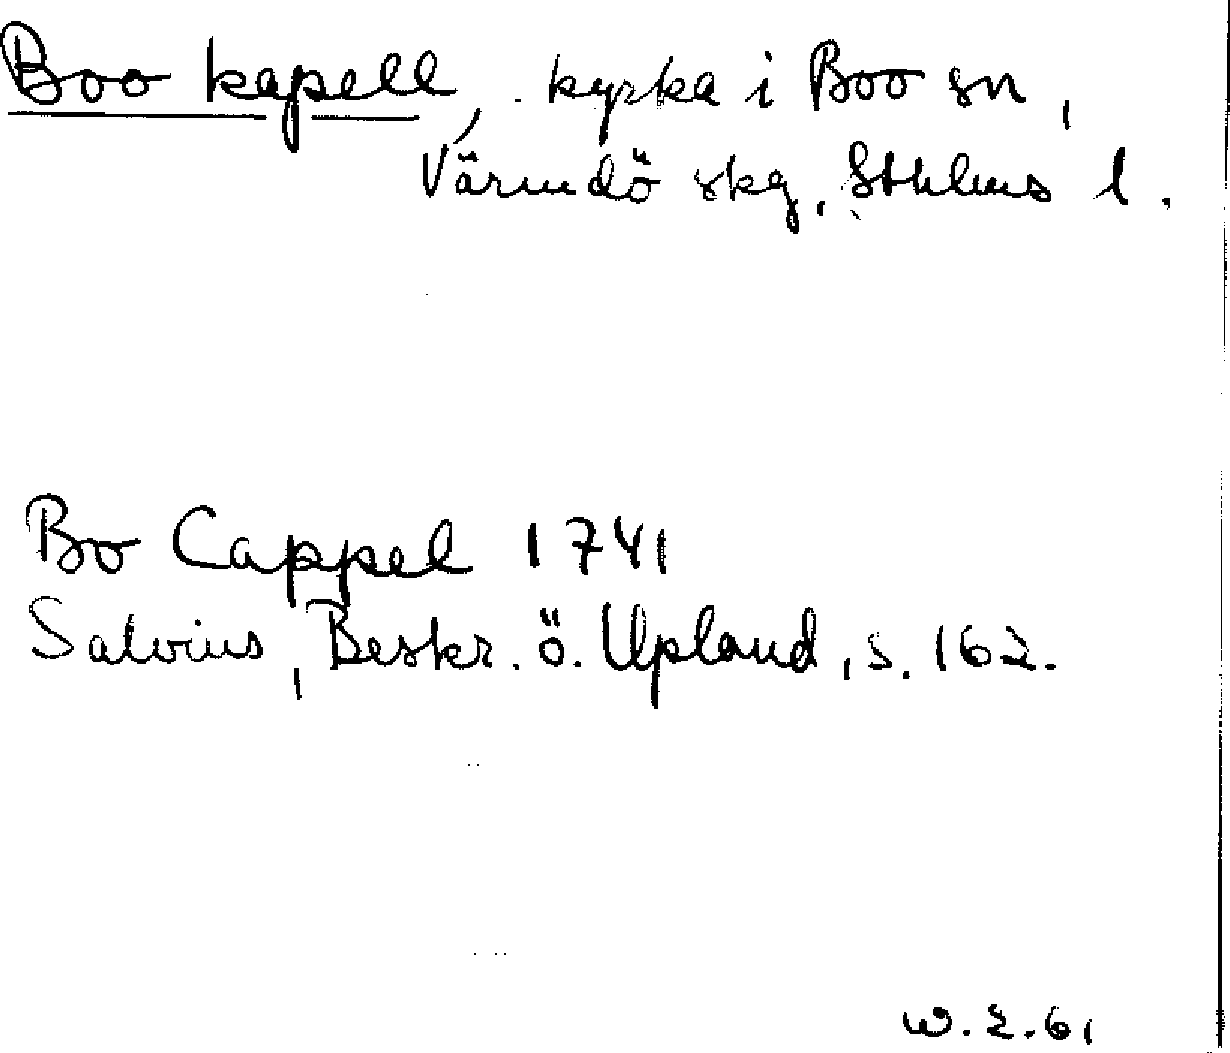 Boo kapell, kyrka i Boo sn,
Värmdö skg, Sthlms l.
Bo Cappel 1741
Salvius, Beskr. ö. Upland, s. 162.
W.E.61